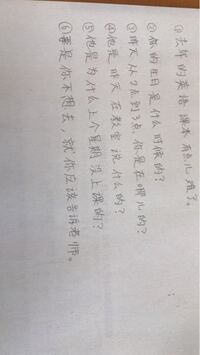 ①去年的英语课本有点儿难了。
②你的作业是什么时候做的?
③昨天从2点到3点,你是在哪儿的?
④他是昨天在教室说什么的?
⑤他是为什么上个星期没上课的?
⑥要是你不想去,就你应该告诉老师。